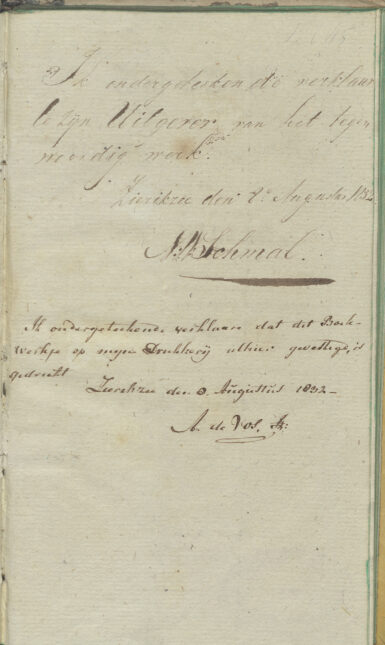 Ik ondergeteekende verklaar
te zijn Uitgever van het tegen
woordig werk.
Zierikzee den 2e Augustus 1832
Schmal.
Ik ondergeteekende verklaare dat dit Boek-
werkje op myne Drukkery alhier gevestigd, is
gedrukt
Zierikzee den 3 Augustus 1832 -
A. de Vos, Jz: